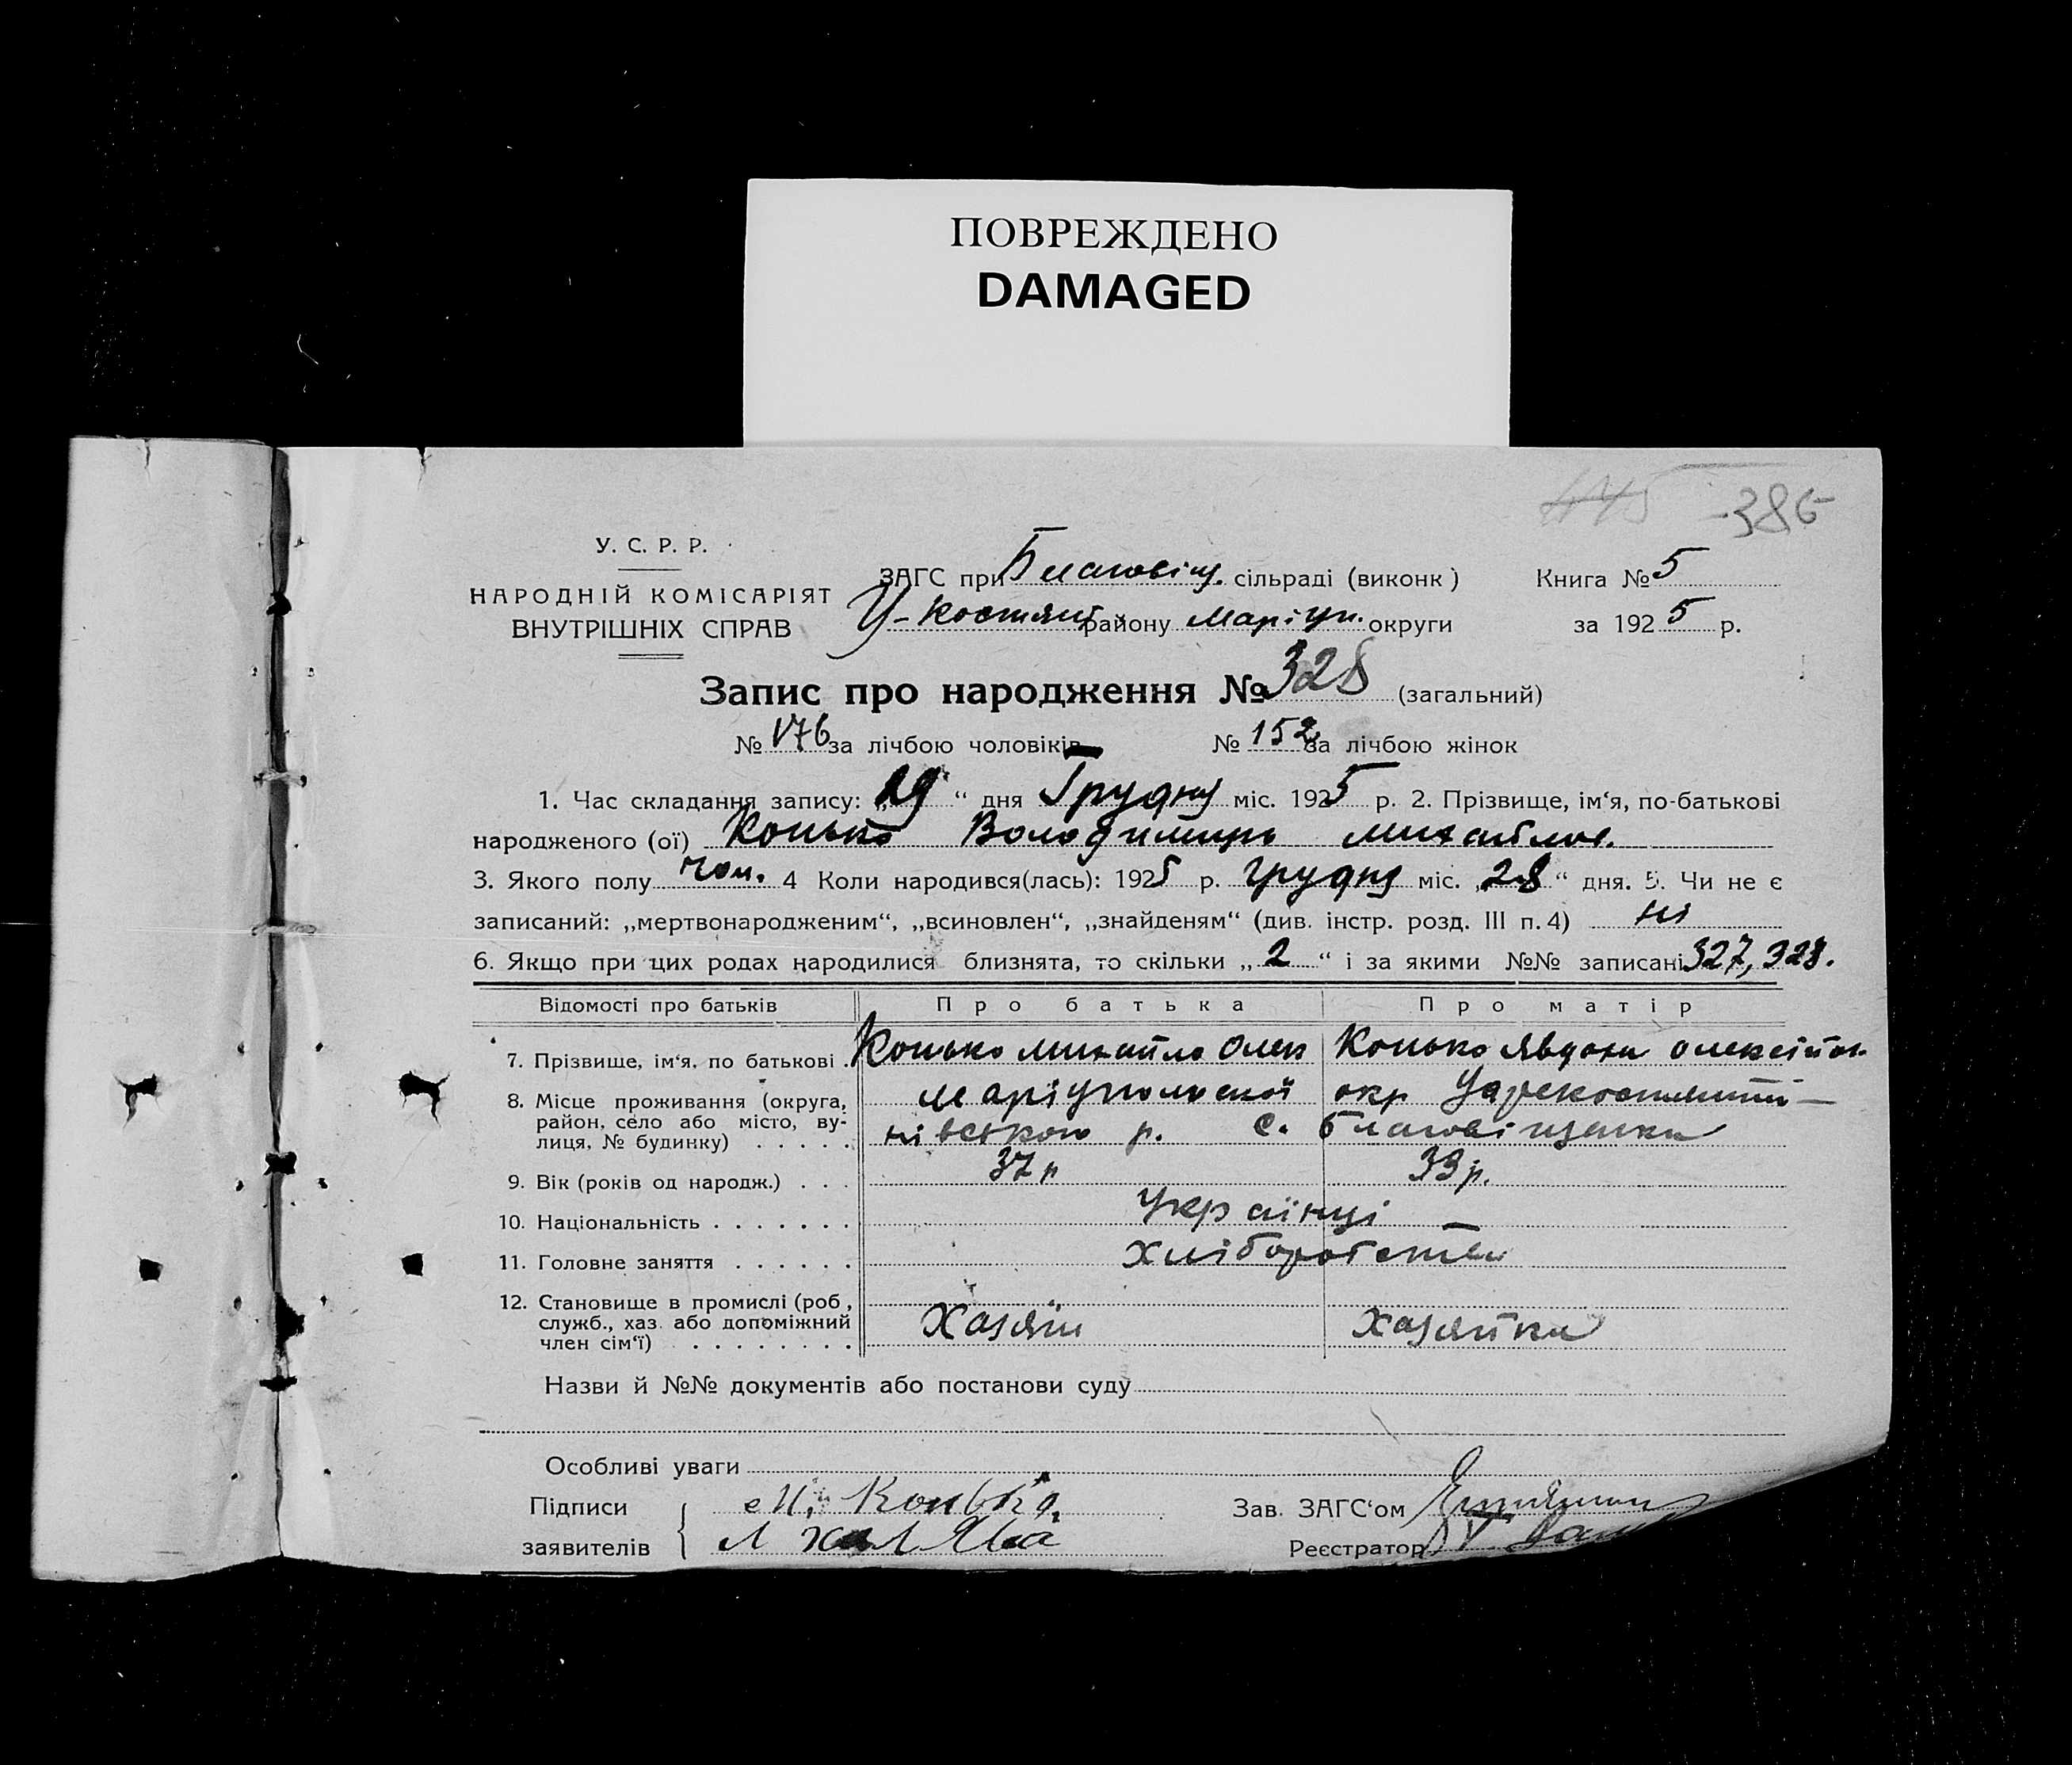 ПОВРЕЖДЕНО
DAMAGED
445 386
У. С. Р. Р.
НАРОДНІЙ КОМІСАРІЯТ
ВНУТРІШНІХ СПРАВ
ЗАГС при Благовіщ. сільраді (виконк) Книга № 5
Ц-Костянт району Маріуп. округи за 1925 р.
Запис про народження № 328 (загальний)
№ 176 за лічбою чоловіків № 152 за лічбою жінок
1. Час складання запису: 29 “ дня Грудня міс. 1925 р. 2. Прізвище, ім‘я, по-батькові
народженого (ої) Конько Володимиръ Михайлов.
3. Якого полу чол. 4 Коли народився(лась): 1925 р. Грудня міс. „28“ дня. 5. Чи не є
записаний: „мертвонародженим“, „всиновлен“, „знайденям“ (див. інстр. розд. III п. 4) ні
6. Якщо при цих родах народилися близнята, то скільки „2“ і за якими №№ записані 327, 328.
Відомості про батьків Про батька Про матір
7. Прізвище, ім‘я, по батькові . Конько Михайло Олек Конько Явдоха Олексійов.
8. Місце проживання (округа, Маріупольської окр Царекостянти-
район, село або місто, ву-
лиця, № будинку) . . . . . нівського р. с. Благовіщенка
9. Вік (років од народж.) . . . 37 р 39 р.
10. Національність . . . . . . . Українці
11. Головне заняття . . . . . . Хліборобства
12. Становище в промислі (роб,
служб., хаз. або допоміжний Хазяїн Хазяйка
член сім‘ї) . . . . . . . .
Назви й №№ документів або постанови суду
Особливі уваги
Підписи М. Конько. Зав. ЗАГС‘ом
заявителів Л Халява Реєстратор